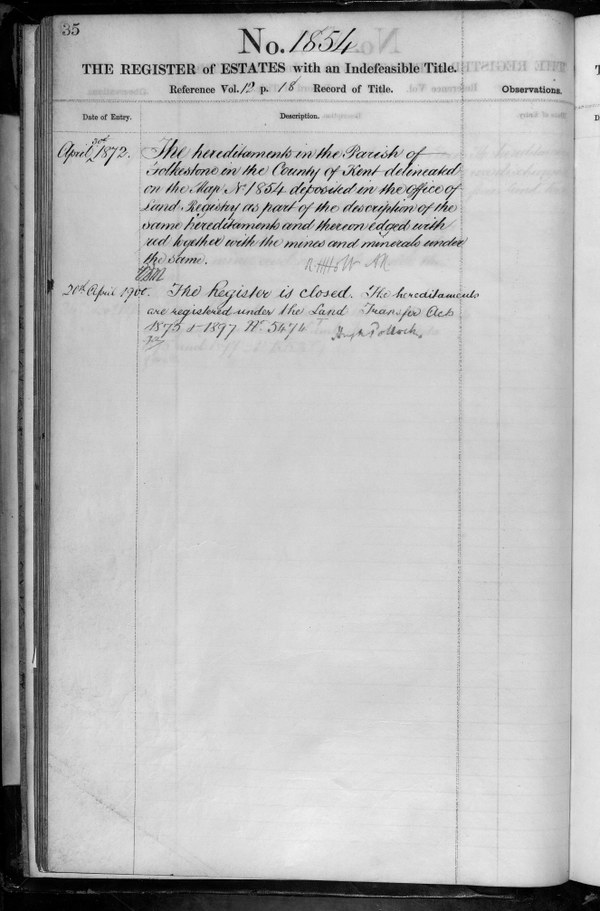 35
No. 1854
THE REGISTER of ESTATES with an Indefeasible Title.
Reference Vol. 12 p. 18 Record of Title.
Observations.
Date of Entry.
Description.
April 30th 1872. The hereditaments in the Parish of
Folkestone in the County of Kent delineated
on the Map No 1854 deposited in the Office of
Land Registry as part of the description of the
same hereditaments and thereon edged with
red together with the mines and minerals under
the same.
RHHolt AR
20th April 1900. The Register is closed. The hereditaments
are registered under the Land Transfer Acts
1875 & 1897 No 5474
Hugh Pollock